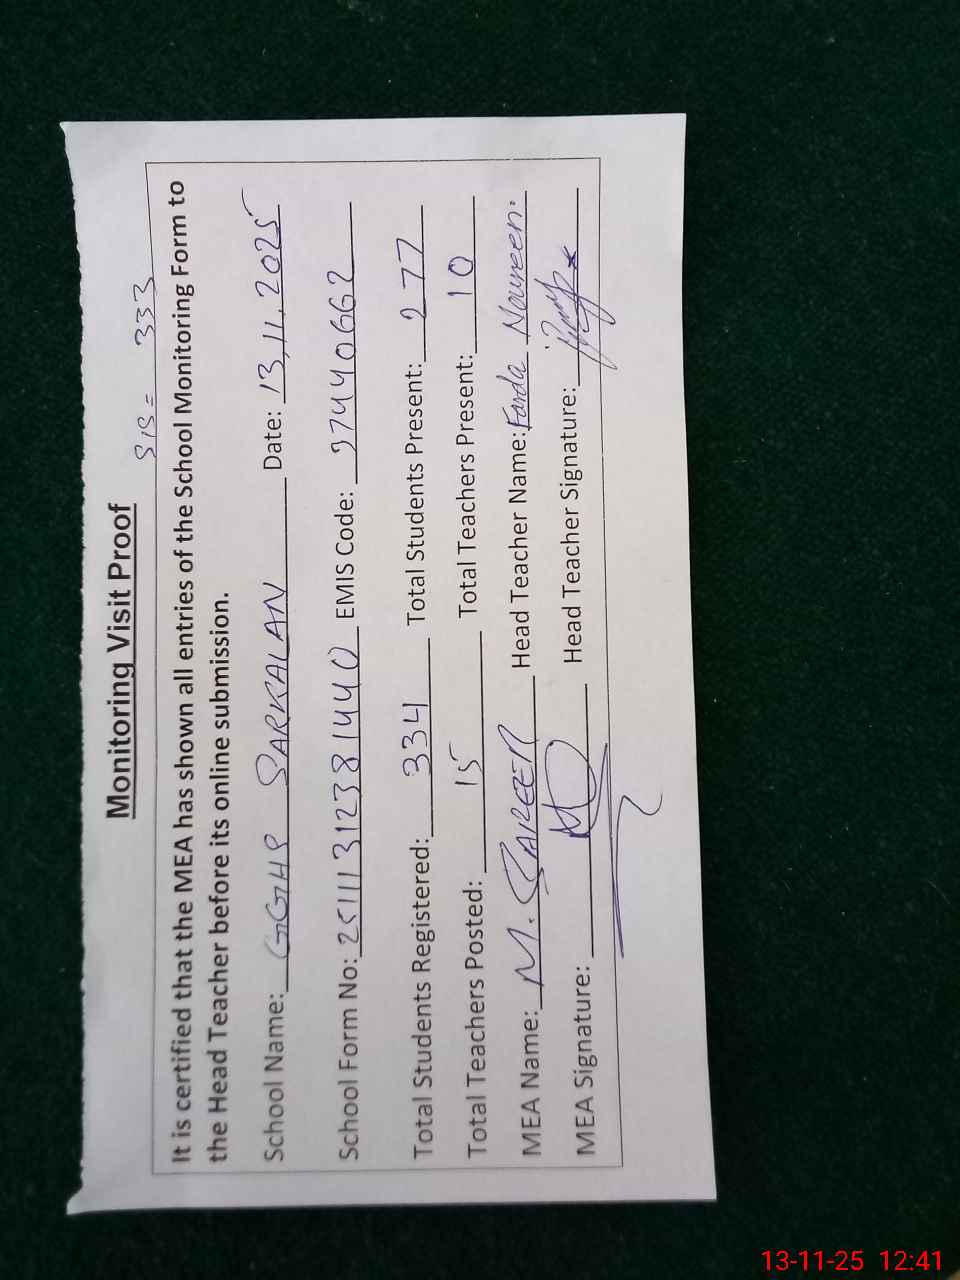 Monitoring Visit Proof
SIS = 333
It is certified that the MEA has shown all entries of the School Monitoring Form to
the Head Teacher before its online submission.
School Name: GGHS SARKALAN Date: 13,11,2025
School Form No: 25111312381440 EMIS Code: 37440662
Total Students Registered: 334 Total Students Present: 277
Total Teachers Posted: 15 Total Teachers Present: 10
MEA Name: M. Head Teacher Name: Farda Noureen.
MEA Signature: Head Teacher Signature:
13-11-25 12:41